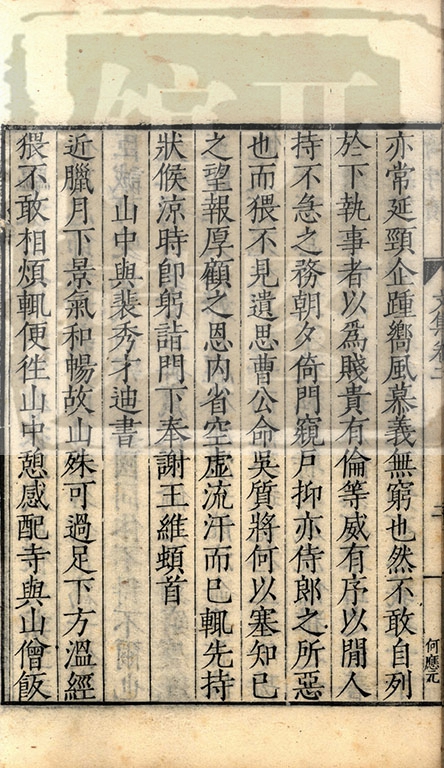 亦常延頸企踵嚮風慕義無窮也然不敢自列
於下執事者以為賤貴有倫等威有序以閒人
持不急之務朝夕倚門窺戶抑亦侍郎之所惡
也而猥不見遺思曹公命吳質將何以塞知己
之望報厚顧之恩内省空虛流汗而已輒先持
狀候涼時即躬詣門下奉謝王維頓首
山中與裴秀才迪書
近臘月下景氣和暢故山殊可過足下方溫經
猥不敢相煩輒便往山中憩感配寺與山僧飯
何應元